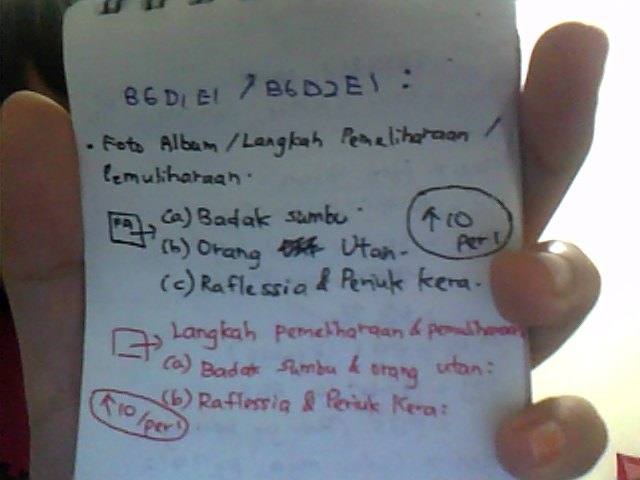 B6D1E1 / B6D2E1 :
• Foto Album / Langkah Pemeliharaan /
Pemuliharaan.
(a) Badak sumbu.
(b) Orang Utan.
(c) Raflessia & Periuk kera.
↑ 10
per 1
Langkah pemeliharaan & pemuliharaan
(a) Badak Sumbu & orang utan:
(b) Raflessia & Periuk Kera:
↑ 10/per 1